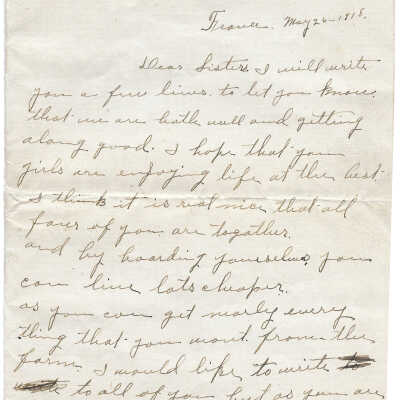 France. May 26-1918.
Dear Sisters, I will write
you a few lines. to let you know.
that we are both well and getting
along good. I hope that you
girls are enjoying life at the best.
I think it is real nice that all
four of you are togather.
and by boarding yourselves, you
can live lots cheaper.
as you can get nearly every
thing that you want from the
farm. I would like to write to
write to all of you but as you are